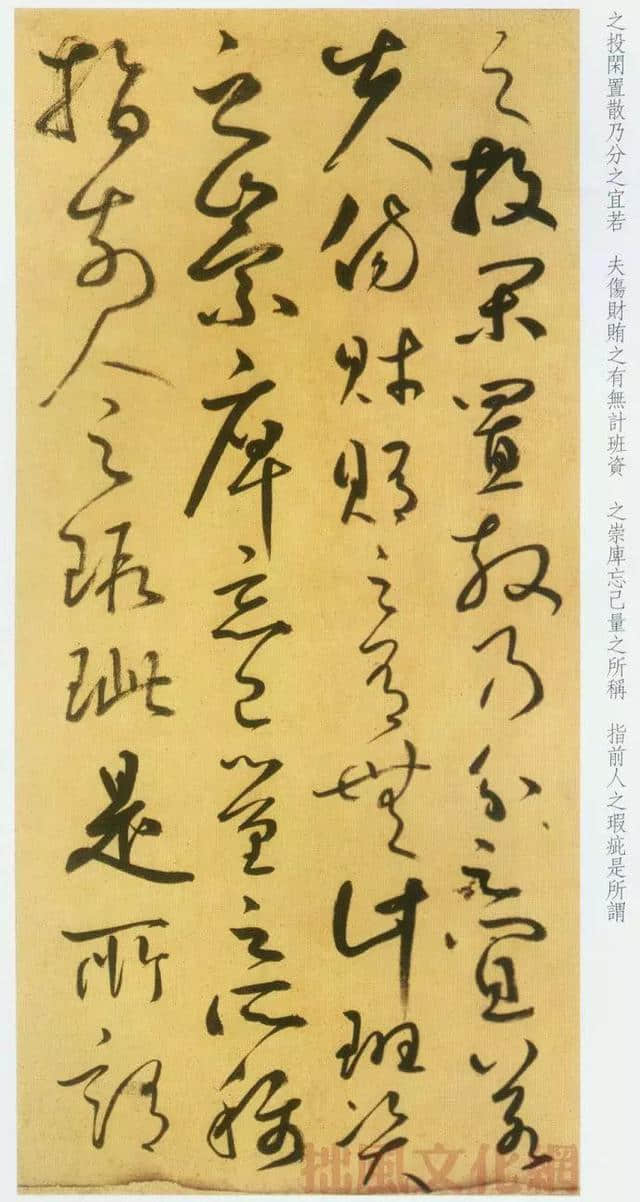 之投閑置散乃分之宜若　夫傷財賄之有無計班資　之崇庳忘己量之所稱　指前人之瑕疵是所謂
之投閑置散乃分之宜若
夫傷財賄之有無計班資
之崇庳忘己量之所稱
指前人之瑕疵是所謂
拙風文化網